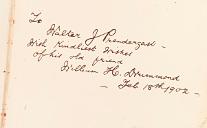 To
Walter J Prendergast -
With Kindliest Wishes
of his old friend
William H. Drummond
- Feb 18th 1902 -